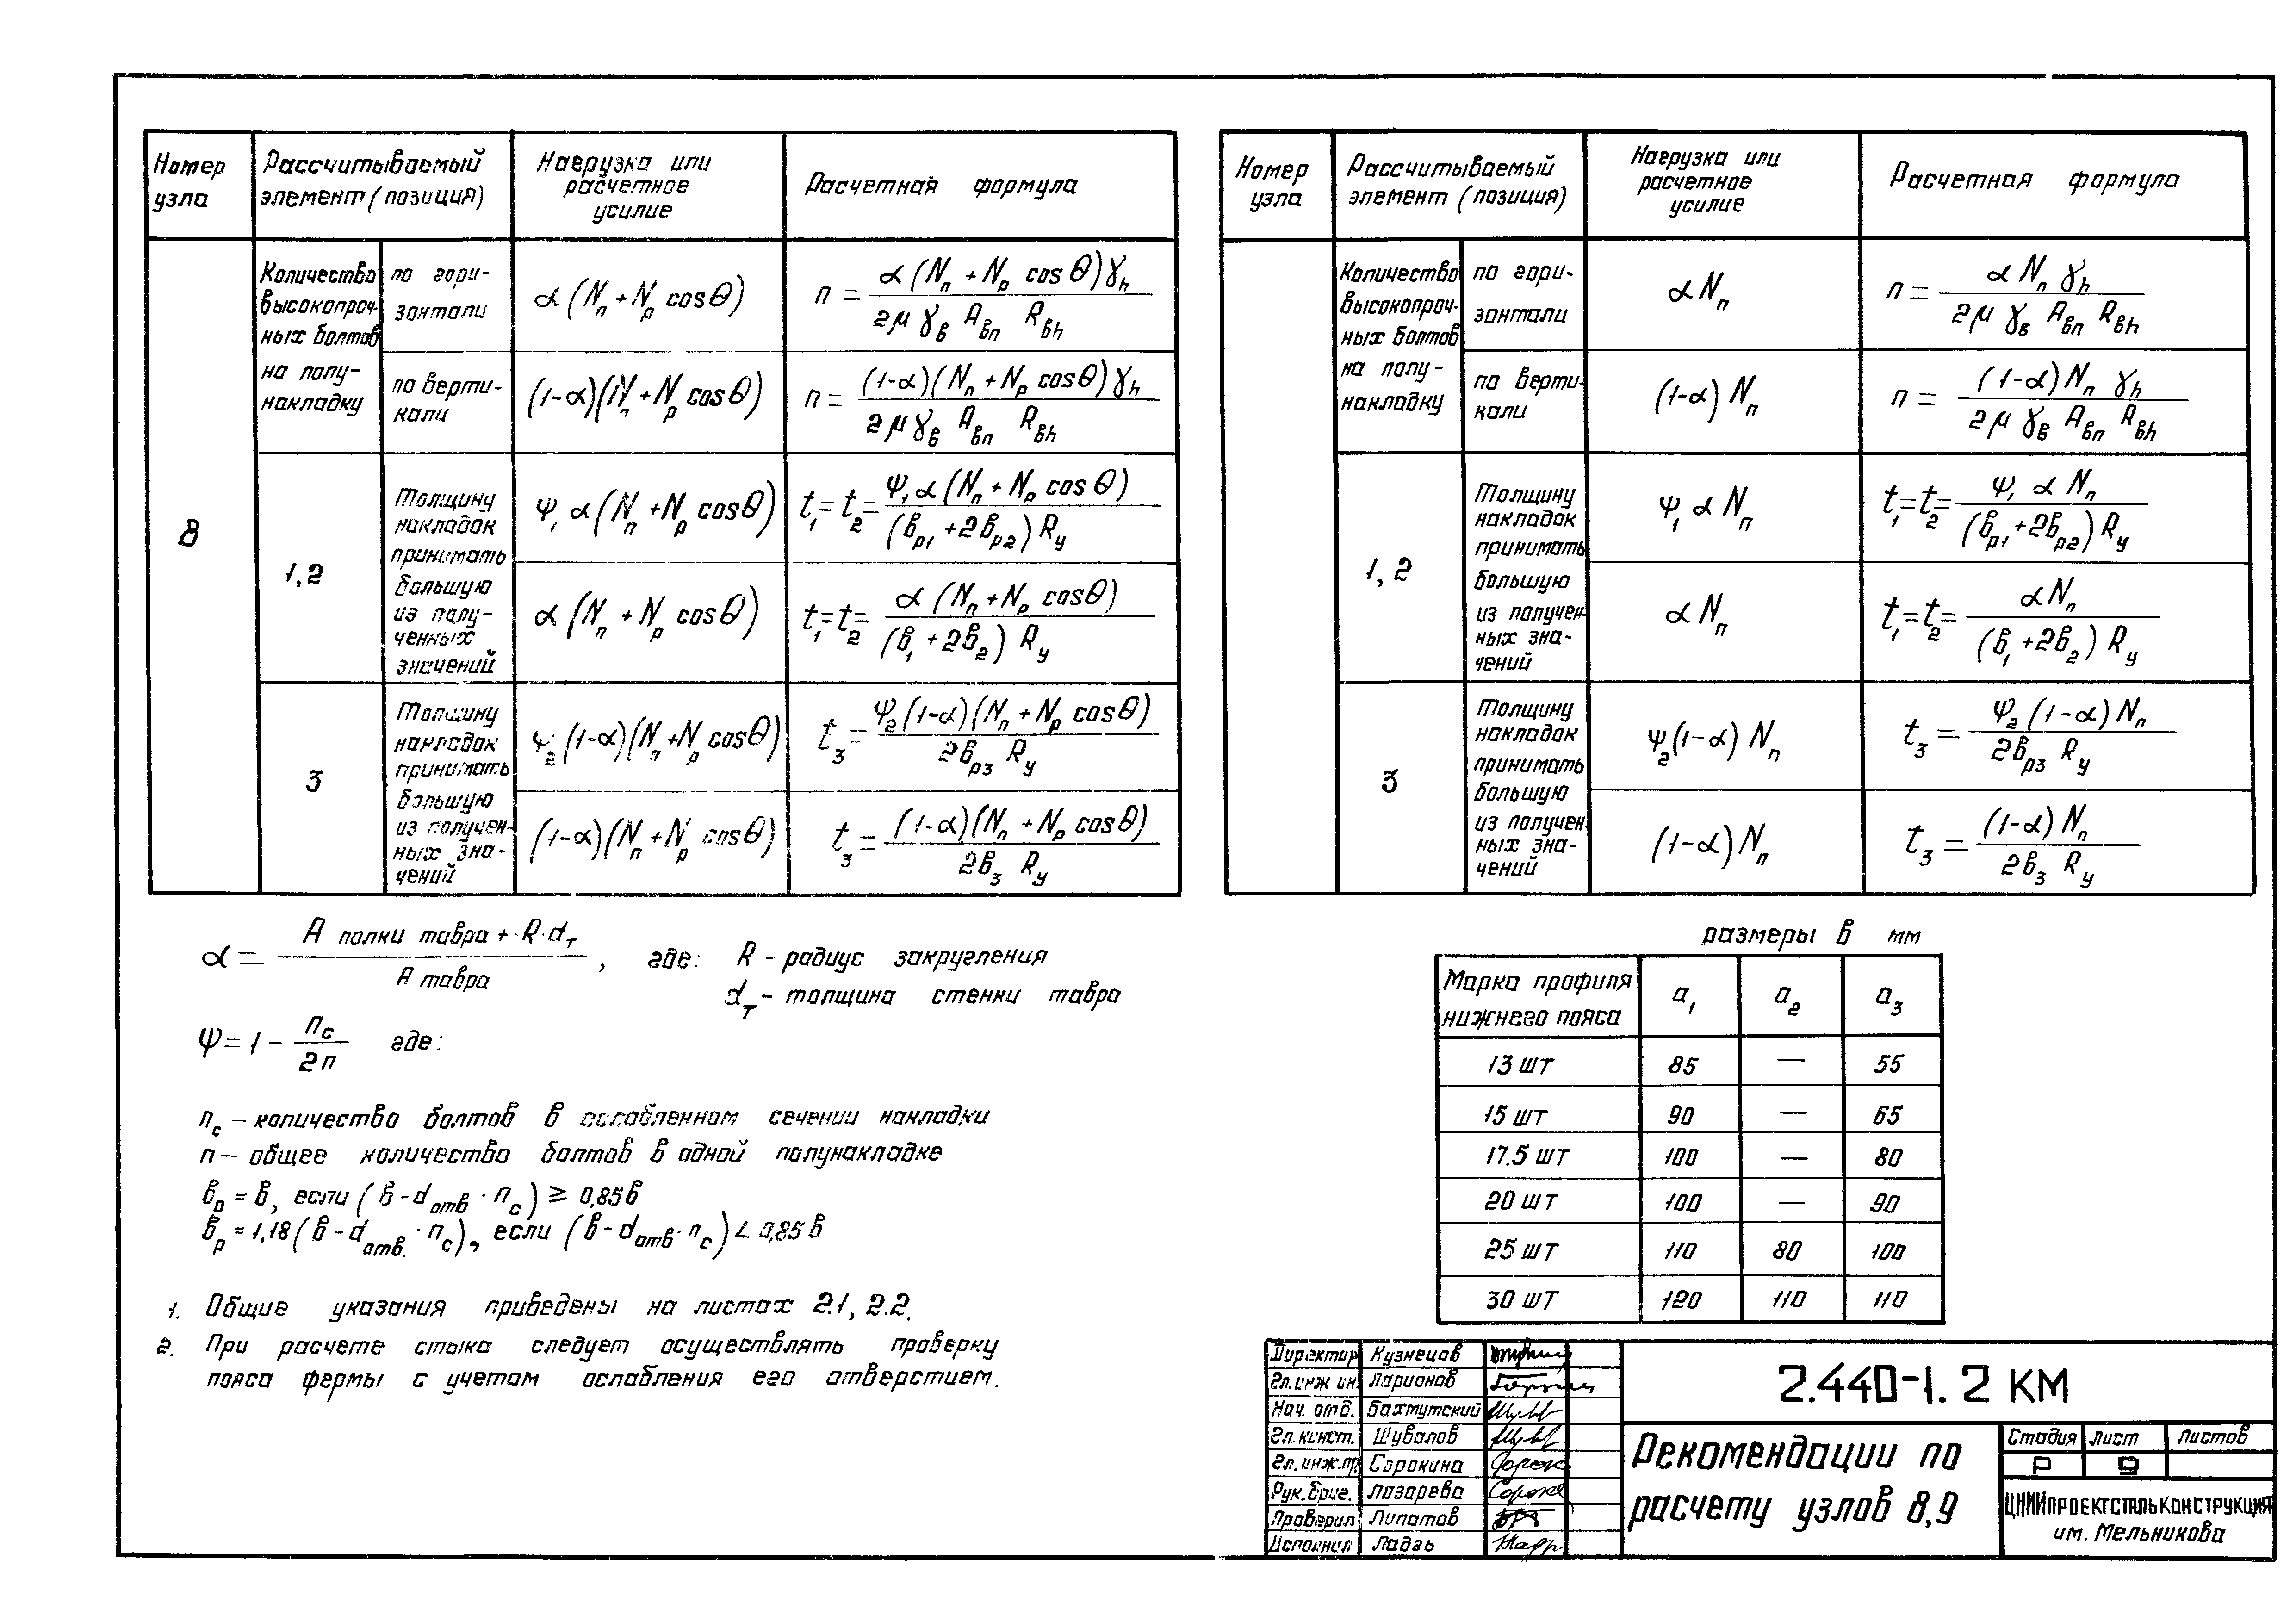 Номер узла
Рассчитываемый элемент (позиция)
Нагрузка или расчетное усилие
Расчетная формула
8
Количество высокопроч-
ных болтов
на полу-
накладку
по гори-
зонтали
α (Nп + Nр cos θ)
n = α (Nп + Nр cos θ) γh / 2μ γв Aвп Rвh
по верти-
кали
(1-α)(Nп + Nр cos θ)
n = (1-α)(Nп + Nр cos θ) γh / 2μ γв Aвп Rвh
1,2
Толщину
накладок
принимать
большую
из полу-
ченных
значений
ψ₁ α (Nп + Nр cos θ)
t₁ = t₂ = ψ₁ α (Nп + Nр cos θ) / (вр1 + 2вр2) Rу
α (Nп + Nр cos θ)
t₁ = t₂ = α (Nп + Nр cos θ) / (в₁ + 2в₂) Rу
3
Толщину
накладок
принимать
большую
из получен-
ных зна-
чений
ψ₂ (1-α)(Nп + Nр cos θ)
t₃ = ψ₂ (1-α)(Nп + Nр cos θ) / 2вр3 Rу
(1-α)(Nп + Nр cos θ)
t₃ = (1-α)(Nп + Nр cos θ) / 2в₃ Rу
Номер узла
Рассчитываемый элемент (позиция)
Нагрузка или расчетное усилие
Расчетная формула
Количество
высокопроч-
ных болтов
на полу-
накладку
по гори-
зонтали
α Nп
n = α Nп γh / 2μ γв Aвп Rвh
по верти-
кали
(1-α) Nп
n = (1-α) Nп γh / 2μ γв Aвп Rвh
1,2
Толщину
накладок
принимать
большую
из получен-
ных зна-
чений
ψ₁ α Nп
t₁ = t₂ = ψ₁ α Nп / (вр1 + 2вр2) Rу
α Nп
t₁ = t₂ = α Nп / (в₁ + 2в₂) Rу
3
Толщину
накладок
принимать
большую
из получен-
ных зна-
чений
ψ₂ (1-α) Nп
t₃ = ψ₂ (1-α) Nп / 2вр3 Rу
(1-α) Nп
t₃ = (1-α) Nп / 2в₃ Rу
α = A полки тавра + R·dт / A тавра , где: R - радиус закругления
dт - толщина стенки тавра
ψ = 1 - nс / 2n где:
nс - количество болтов в ослабленном сечении накладки
n - общее количество болтов в одной полунакладке
вр = в, если (в - dотв · nс) ≥ 0,85в
вр = 1,18 (в - dотв. · nс), если (в - dотв · nс) < 0,85 в
1. Общие указания приведены на листах 2.1, 2.2.
2. При расчете стыка следует осуществлять проверку
пояса фермы с учетом ослабления его отверстием.
размеры в мм
Марка профиля нижнего пояса a₁ a₂ a₃
13 шт 85 — 55
15 шт 90 — 65
17.5 шт 100 — 80
20 шт 100 — 90
25 шт 110 80 100
30 шт 120 110 110
Директор Кузнецов
Гл. инж ин. Ларионов
Нач. отд. Бахмутский
Гл. конст. Шувалов
Гл. инж. пр. Сорокина
Рук. бриг. Лазарева
Проверил Липатов
Исполнил Ладзь
2.440-1. 2 КМ
Рекомендации по
расчету узлов 8,9
Стадия Лист Листов
Р 9
ЦНИИпроектстальконструкция
им. Мельникова